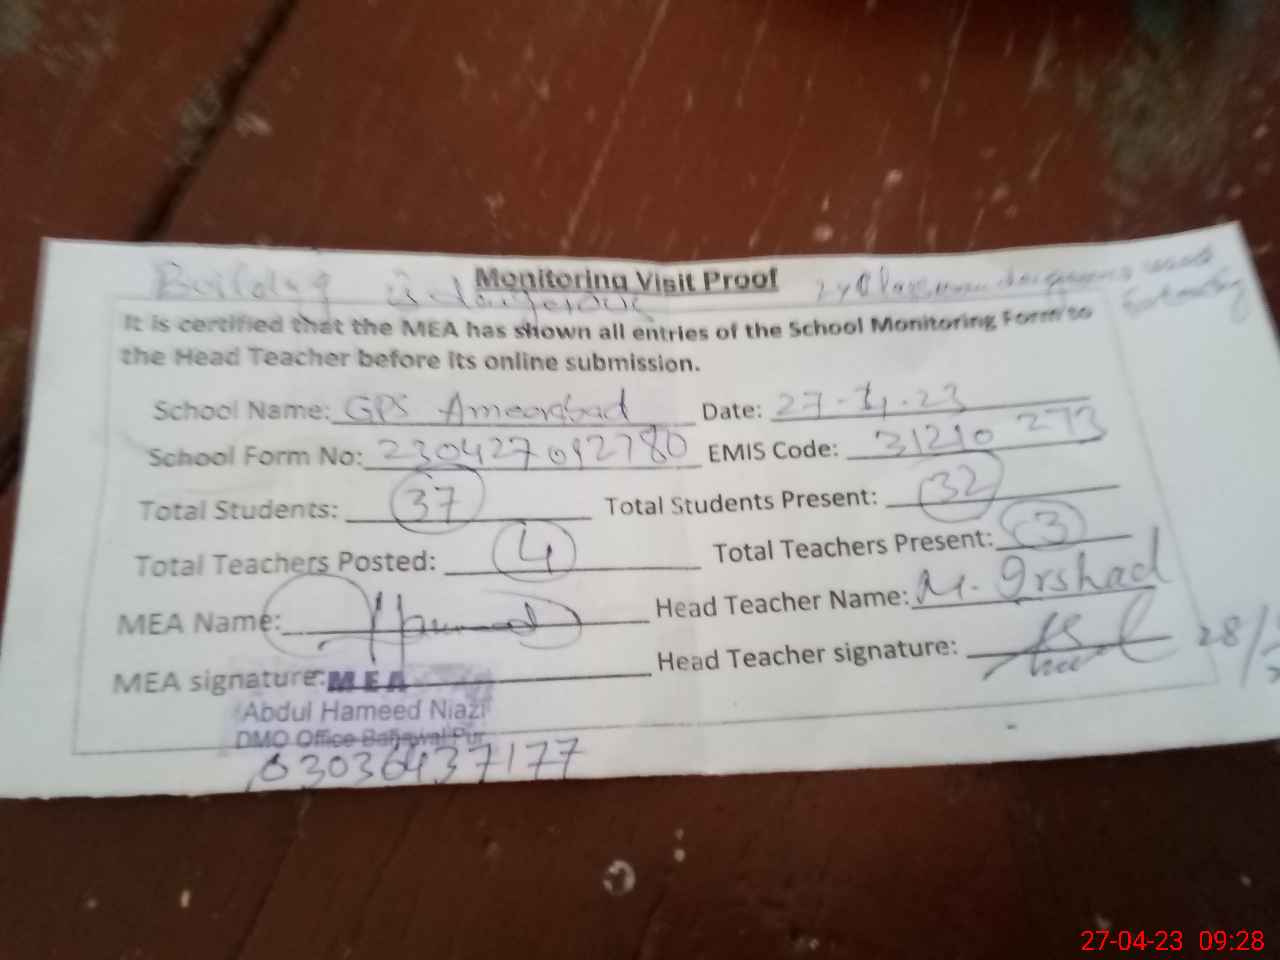 Monitoring Visit Proof
Building is dangerous
It is certified that the MEA has shown all entries of the School Monitoring Form to
the Head Teacher before its online submission.
School Name: GPS Ameerabad Date: 27-4-23
School Form No: 230427092780 EMIS Code: 31210 273
Total Students: 37 Total Students Present: 32
Total Teachers Posted: 4 Total Teachers Present: 3
MEA Name: Hameed Head Teacher Name: M. Irshad
MEA signature: Head Teacher signature:
MEA
Abdul Hameed Niazi
DMO Office Bahawal Pur
03036437177
27-04-23 09:28